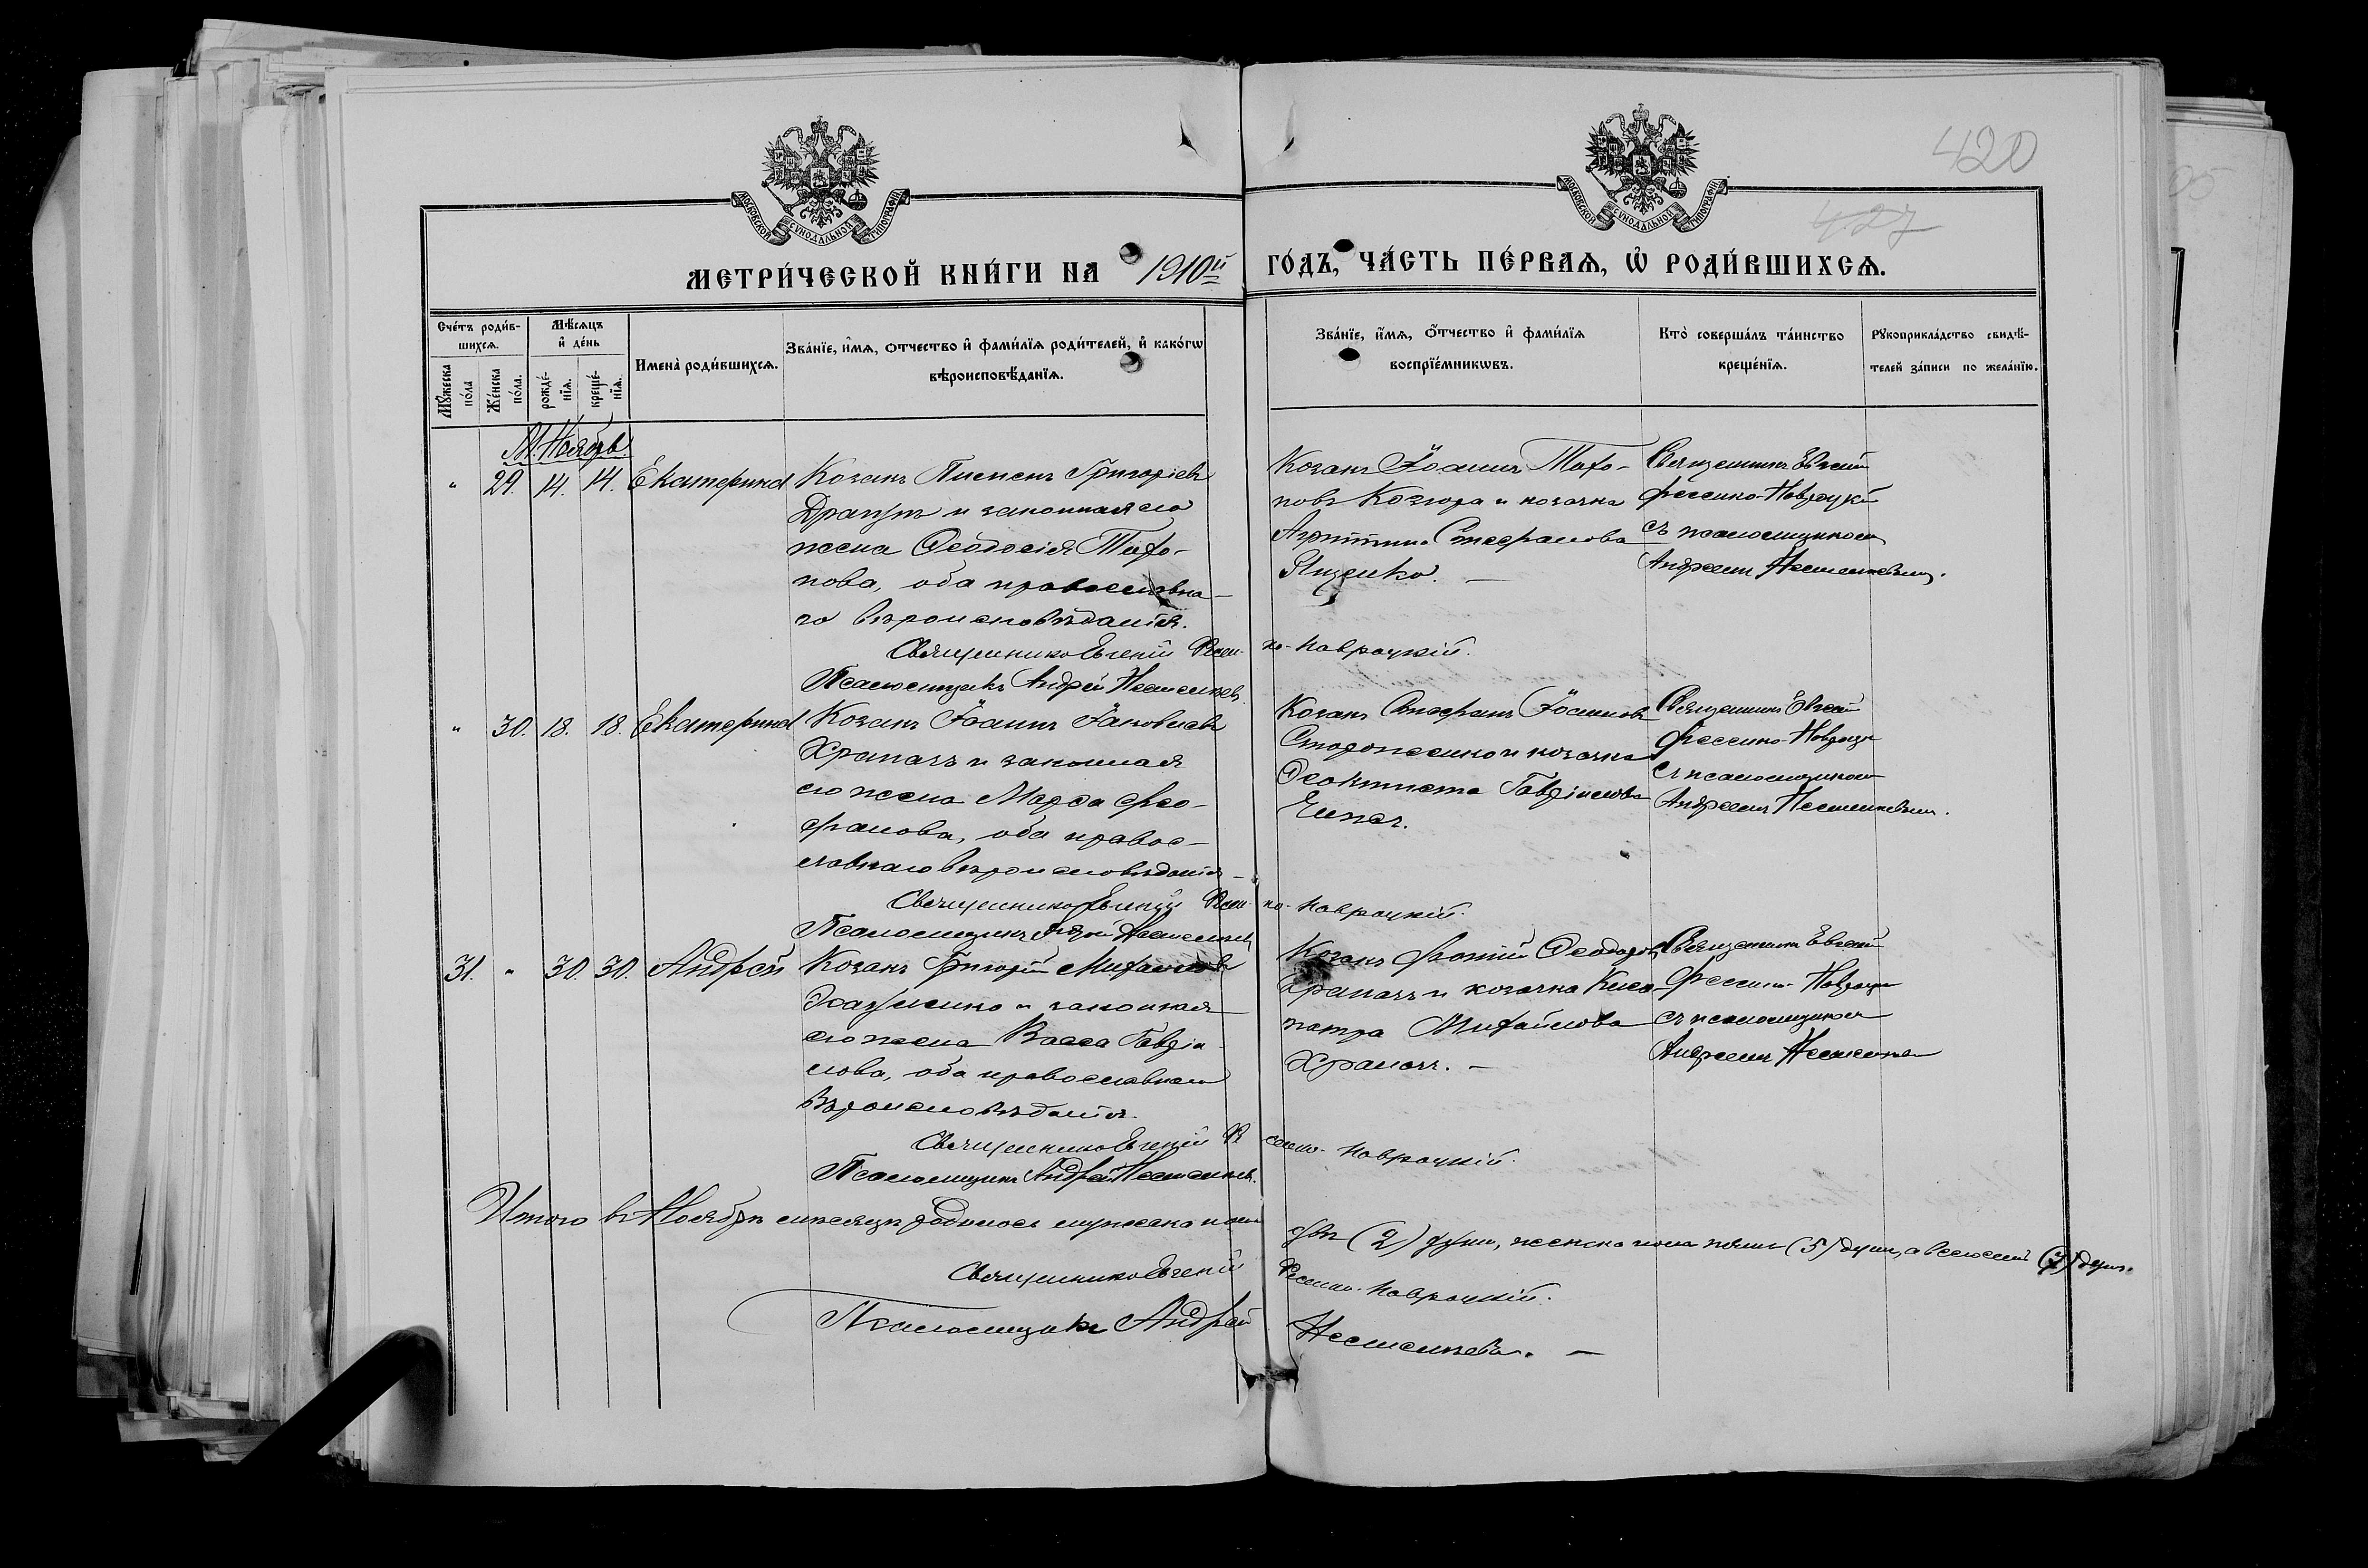 420
427
МОСКОВСКОЙ СУНОДАЛЬНОЙ ТИПОГРАФІИ
МОСКОВСКОЙ СУНОДАЛЬНОЙ ТИПОГРАФІИ
МЕТРИ́ЧЕСКОЙ КНИ́ГИ НА 1910й ГО́ДЪ, ЧА́СТЬ ПЕ́РВАѦ, Ѡ РОДИ́ВШИХСѦ.
Сче́тъ роди́в-
шихсѧ.
Мꙋ́жеска по́ла
Же́нска по́ла.
Мѣ́сѧцъ
и҆ де́нь
рожде́-
нїѧ.
креще́-
нїѧ.
Имена̀ роди́вшихсѧ.
Зва́нїе, и҆́мѧ, ѻ҆́тчество и҆ фами́лїѧ роди́телей, и҆ како́гѡ
вѣроисповѣ́данїѧ.
Зва́нїе, и҆́мѧ, ѻ҆́тчество и҆ фами́лїѧ
воспрїе́мникѡвъ.
Кто̀ соверша́лъ та́инство
креще́нїѧ.
Рꙋкоприкла́дство свидѣ́-
телей за́писи по жела́нїю.
М. Ноябрь.
" 29. 14. 14. Екатерина
Козакъ Пименъ Григоріевъ
Драгунъ и законная его
жена Ѳеодосія Тихо-
нова, оба православна-
го вѣроисповѣданія.
Козакъ Іоаннъ Тихо-
новъ Козюра и козачка
Агриппина Стефанова
Яценко. —
Священникъ Евгеній
Фесенко-Навроцкій
съ псаломщикомъ
Андреемъ Нестеенковымъ.
Священникъ Евгеній Фесен-ко-Навроцкій.
Псаломщикъ Андрей
" 30. 18. 18. Екатерина
Козакъ Іоаннъ Іаковлевъ
Храпачъ и законная
его жена Марѳа Фео-
фанова, оба правос-
лавнаго вѣроисповѣданія —
Козакъ Стефанъ Іоанновъ
Стороженко и козачка
Ѳеоктиста Гавріилова
Священникъ Евгеній
Фесенко-Навроцкій
съ псаломщикомъ
Андреемъ
Священникъ Евгеній Фесен-ко-Навроцкій.
Псаломщикъ Андрей
31. " 30. 30. Андрей
Козакъ Григорій Михайловъ
и законная
его жена Васса Гаврі-
лова, оба православнаго
вѣроисповѣданія.
Козакъ Фотій Ѳеодоровъ
Храпачъ и козачка Клео-
патра Михайлова
Храпачъ. —
Священникъ Евгеній
Фесенко-Навроцкій
съ псаломщикомъ
Андреемъ
Священникъ Евгеній Фесенко-Навроцкій.
Псаломщикъ Андрей
Итого въ Ноябрѣ мѣсяцѣ родилось мужеска пола двѣ (2) души, женска пола пять (5) душъ, а всего семь (7) душъ.
Священникъ Евгеній Фесенко-Навроцкій.
Псаломщикъ Андрей